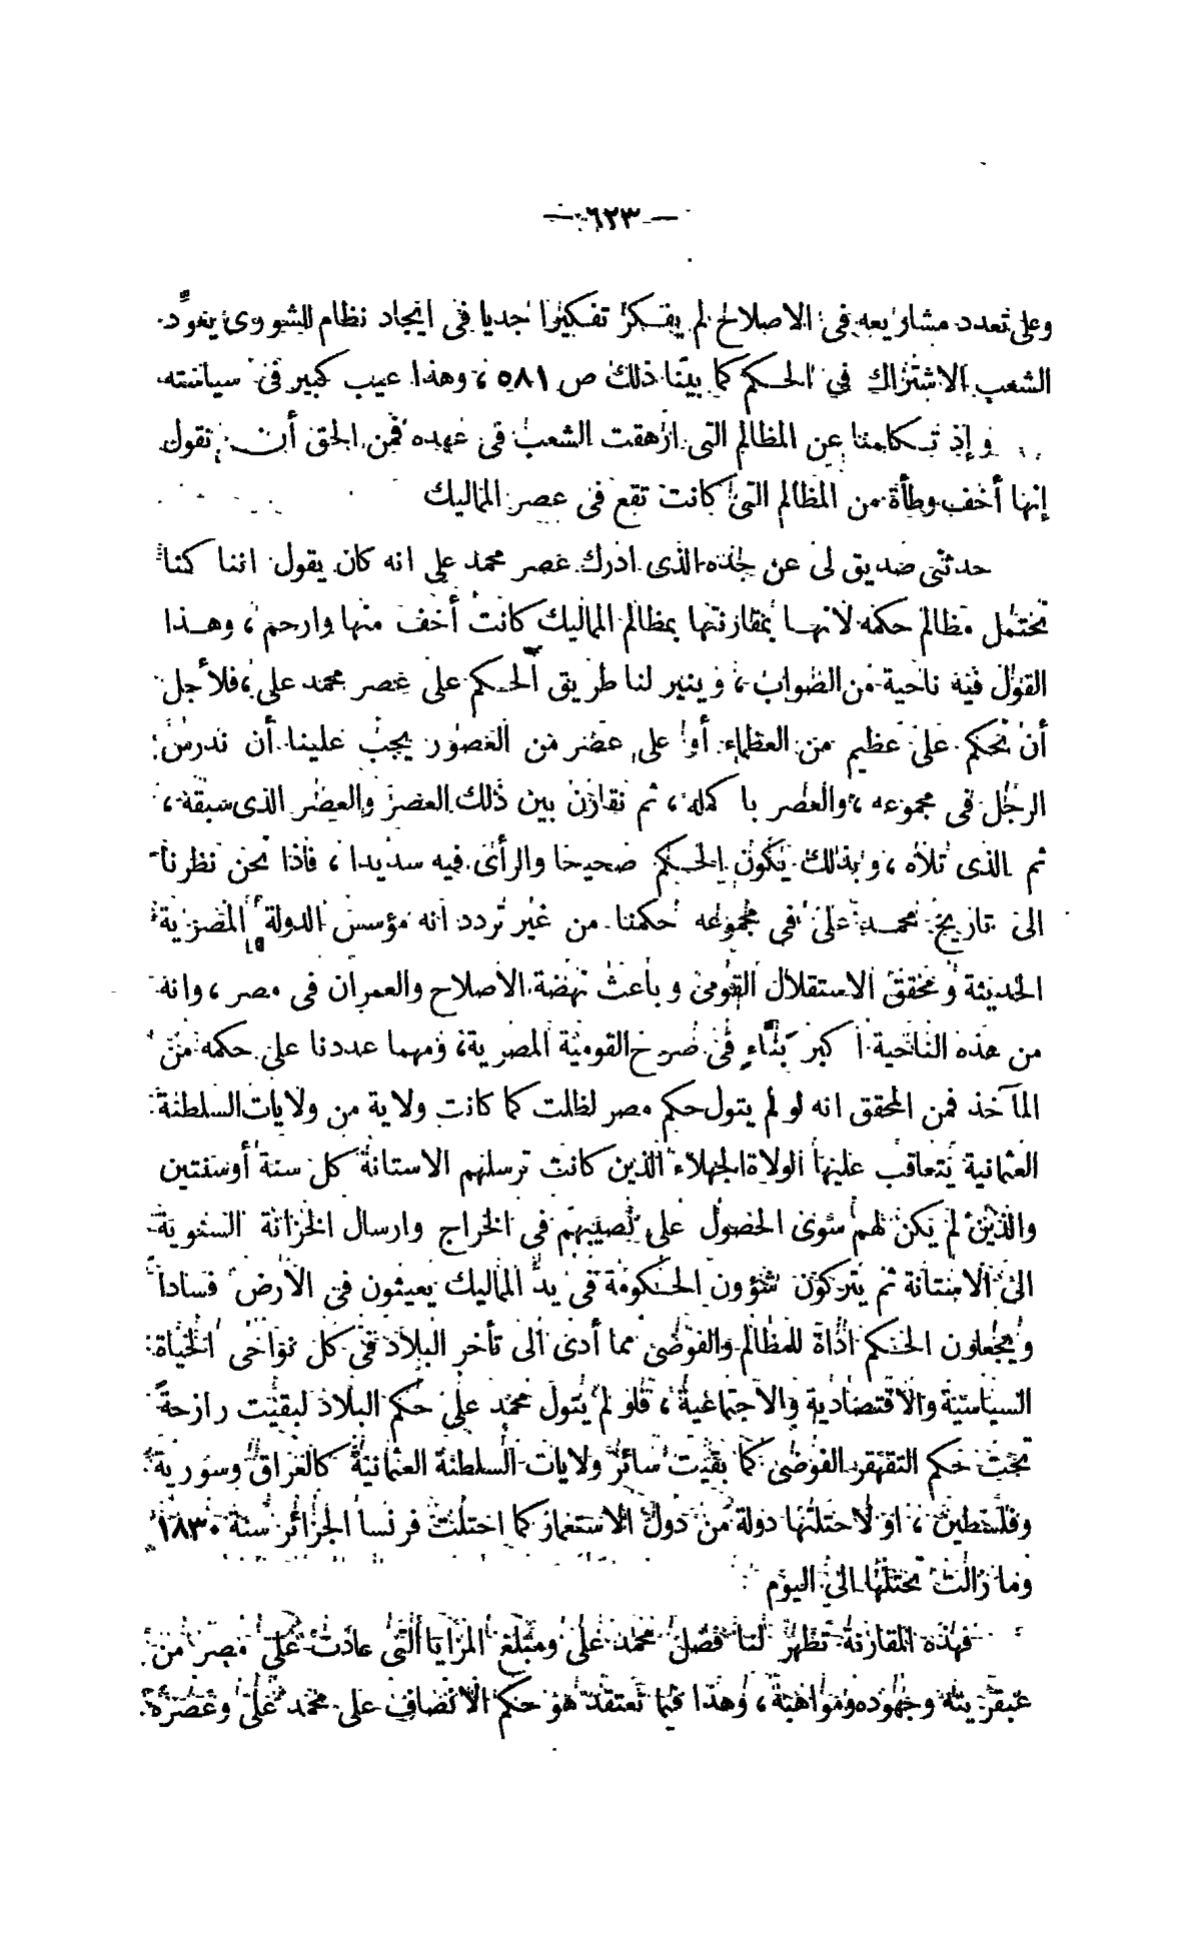 — ٦٢٣ —
وعلى تعدد مشاريعه فى الاصلاح لم يفكر تفكيرا جديا فى ايجاد نظام للشورى يعوِّد
الشعب الاشتراك في الحكم كما بينا ذلك ص ٥٨١ ، وهذا عيب كبير فى سياسته
وإذ تكلمنا عن المظالم التى ازهقت الشعب فى عهده فمن الحق أن نقول
إنها أخف وطأة من المظالم التى كانت تقع فى عصر المماليك
حدثنى صديق لى عن جده الذى ادرك عصر محمد على انه كان يقول اننا كنا
نحتمل مظالم حكمه لانها بمقارنتها بمظالم المماليك كانت أخف منها وارحم ، وهذا
القول فيه ناحية من الصواب ، وينير لنا طريق الحكم على عصر محمد على ، فلأجل
أن نحكم على عظيم من العظماء أو على عصر من العصور يجب علينا أن ندرس
الرجل فى مجموعه ، والعصر باكمله ، ثم نقارن بين ذلك العصر والعصر الذى سبقه ،
ثم الذى تلاه ، وبذلك يكون الحكم صحيحا والرأى فيه سديدا ، فاذا نحن نظرنا
الى تاريخ محمد على فى مجموعه حكمنا من غير تردد انه مؤسس الدولة المصرية
الحديثة ومحقق الاستقلال القومى وباعث نهضة الاصلاح والعمران فى مصر ، وانه
من هذه الناحية اكبر بنَّاء فى صرح القومية المصرية ، ومهما عددنا على حكمه من
المآخذ فمن المحقق انه لو لم يتول حكم مصر لظلت كما كانت ولاية من ولايات السلطنة
العثمانية يتعاقب عليها الولاة الجهلاء الذين كانت ترسلهم الاستانة كل سنة أوسنتين
والذين لم يكن لهم سوى الحصول على نصيبهم فى الخراج وارسال الخزانة السنوية
الى الاستانة ثم يتركون شؤون الحكومة فى يد المماليك يعيثون فى الأرض فساداً
ويجعلون الحكم اداة للمظالم والفوضى مما أدى الى تأخر البلاد فى كل نواحى الحياة
السياسية والاقتصادية والاجتماعية ، فلو لم يتول محمد على حكم البلاد لبقيت رازحةً
تحت حكم التقهقر الفوضى كما بقيت سائر ولايات السلطنة العثمانية كالعراق وسورية
وفلسطين ، او لاحتلتها دولة من دول الاستعمار كما احتلت فرنسا الجزائر سنة ١٨٣٠
وما زالت تحتلها الى اليوم
فهذه المقارنة تظهر لنا فضل محمد على ومبلغ المزايا التى عادت على مصر من
عبقريته وجهوده ومواهبه ، وهذا فيما نعتقد هو حكم الانصاف على محمد على وعصره